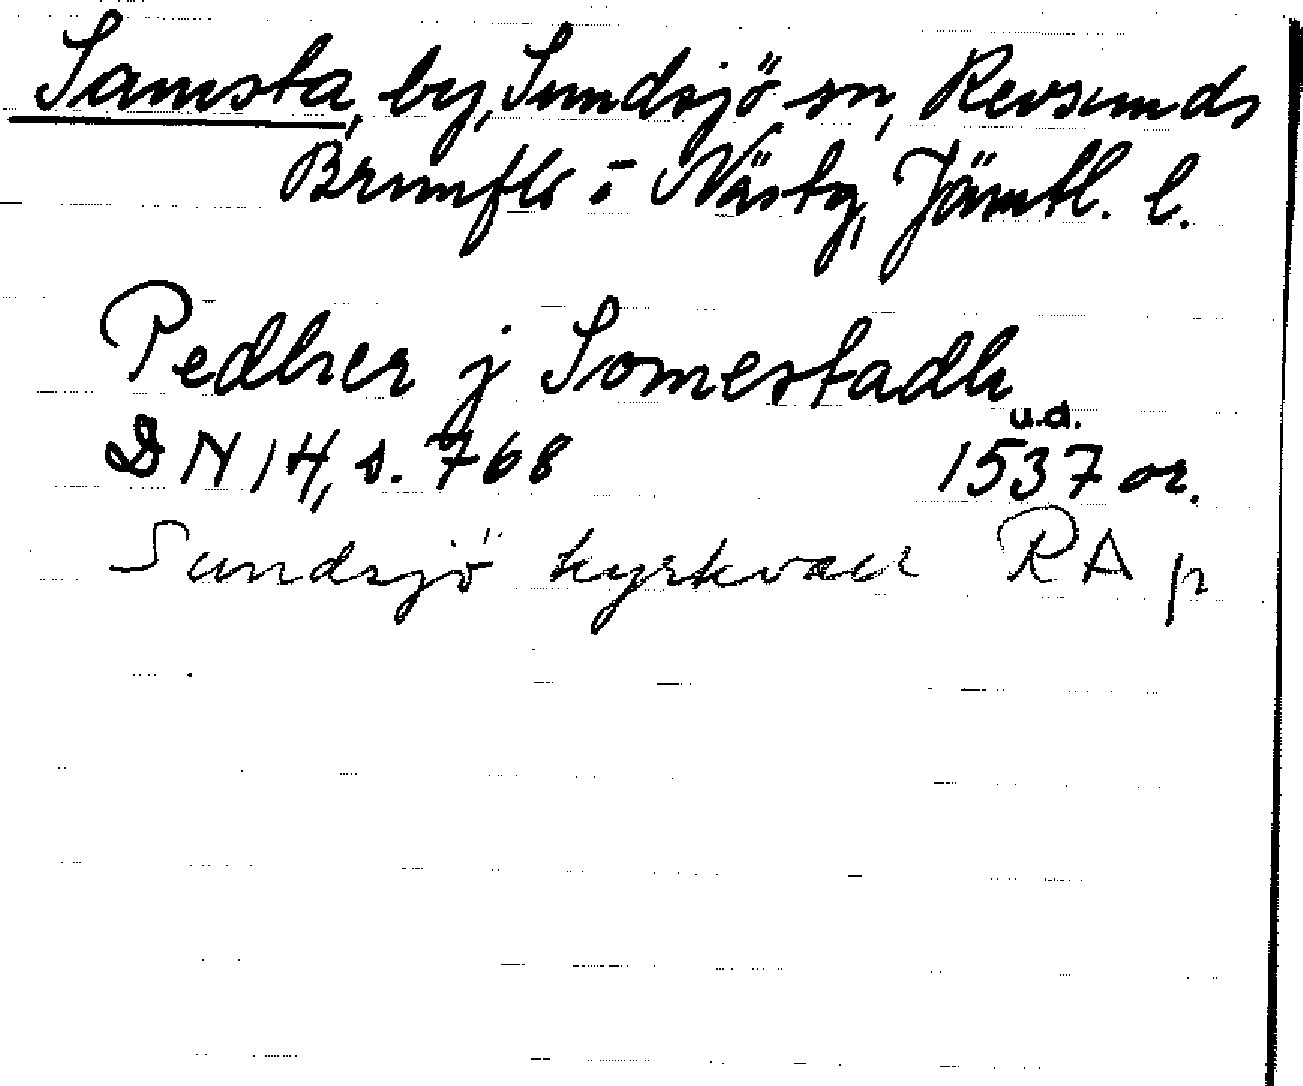 Samsta, by, Sundsjö sn, Revsunds
Brunflo o Näs tg, Jämtl. l.
Pedher j Somestadh
u.d.
DN 14, s. 768 1537 or.
Sundsjö kyrkvall RA p